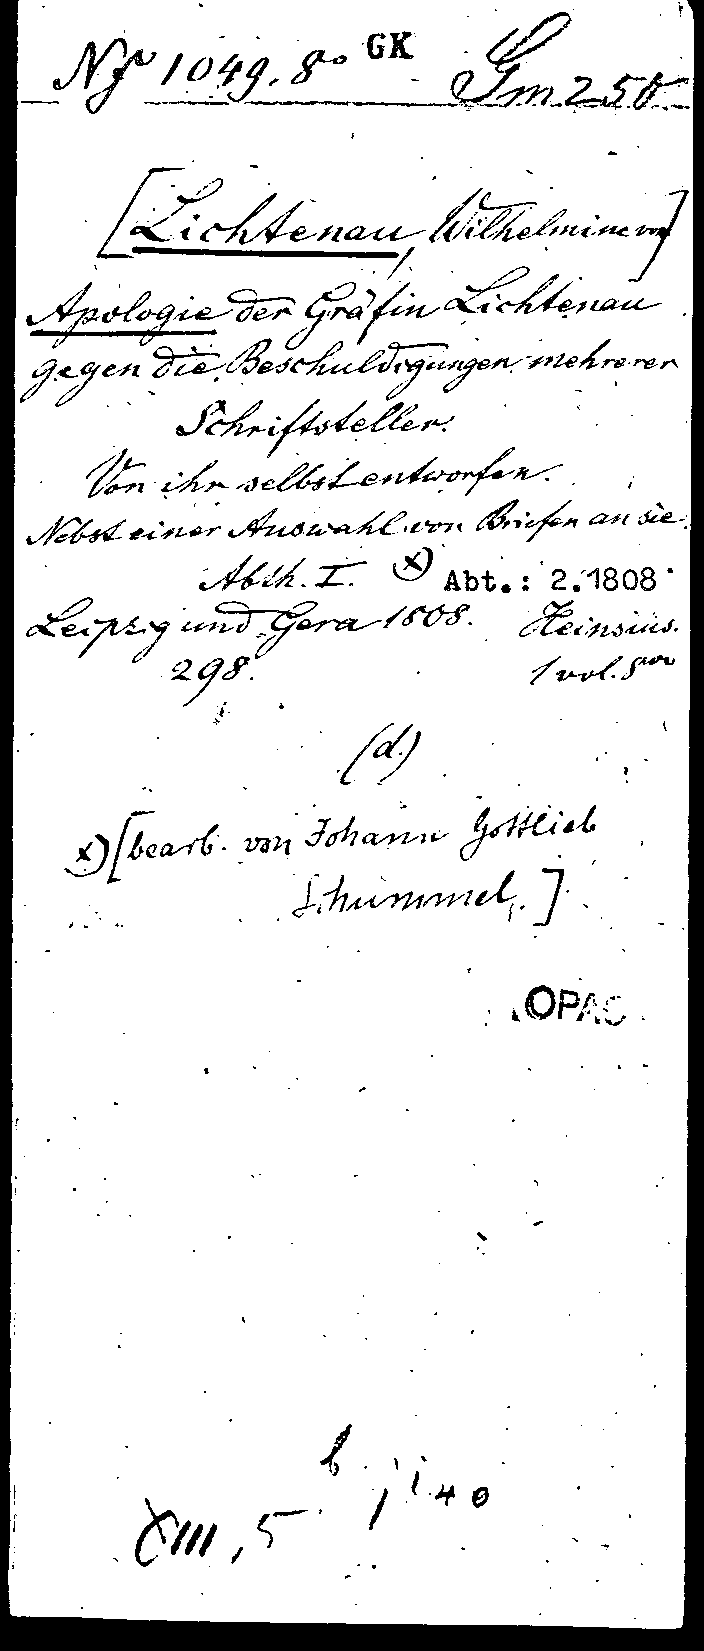 Nf 1049. 8° GK Gm 250
[Lichtenau, Wilhelmine von]
Apologie der Gräfin Lichtenau
gegen die Beschuldigungen mehrerer
Schriftsteller.
Von ihr selbst entworfen.
Nebst einer Auswahl von Briefen an sie.
Abth. I. x) Abt.: 2.1808
Leipzig und Gera 1808. Heinsius.
298. 1 vol. 8vo
(d.)
x) [bearb. von Johann Gottlieb
Schummel.]
OPAC
XIII, 5